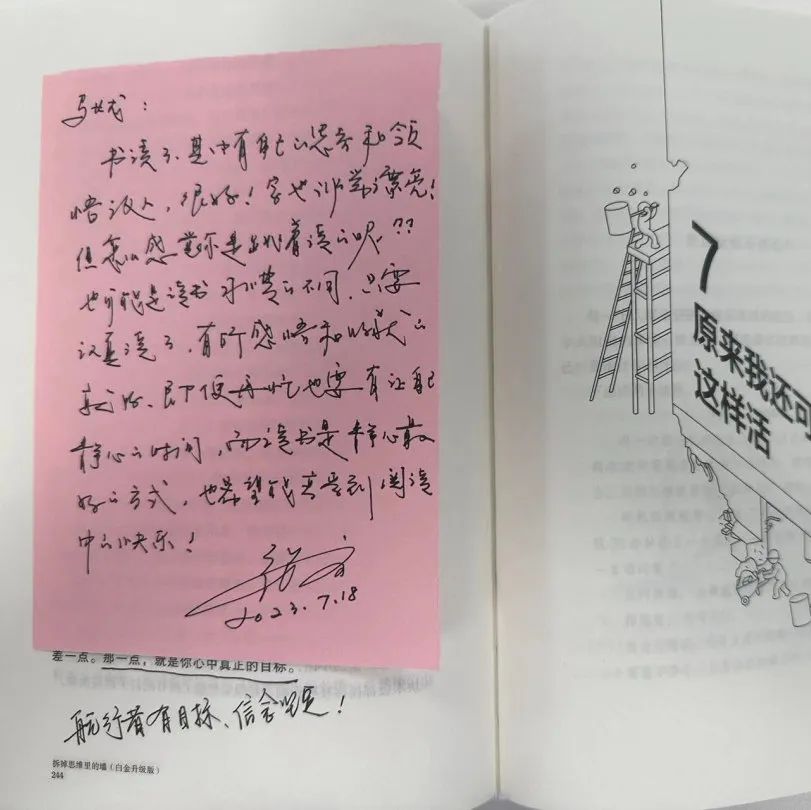 马龙：
书读了，其中有自己的思考和领
悟收入，很好！字也非常漂亮！
但怎么感觉你是跳着读的呢??
也可能是读书习惯的不同，只要
认真读了，有所感悟和收获的
就好、即便再忙也要有让自己
静心的时间，而读书是静心最
好的方式，也希望能享受到阅读
中的快乐！
2023.7.18
差一点。那一点，就是你心中真正的目标。
航行者有目标、信念坚定！
拆掉思维里的墙（白金升级版）
244
7
原来我还可
这样活